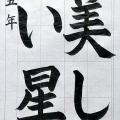 美し
い星
五年